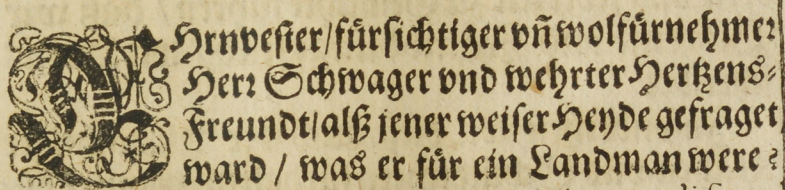 EHrnvester/fürsichtiger vñ wolfürnehmer
Herr Schwager vnd wehrter Hertzens⸗
Freundt/alß jener weiser Heyde gefraget
ward / was er für ein Landman were?